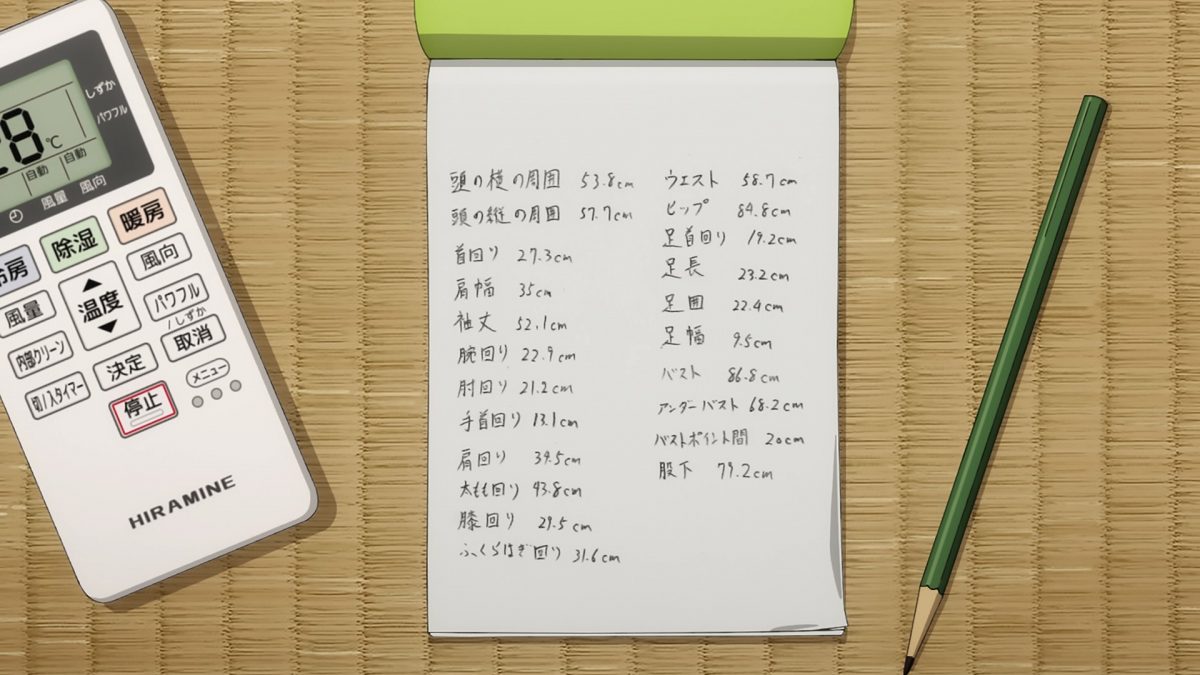 しずか
パワフル
28℃
自動 自動
風量 風向
冷房 除湿 暖房
風量 温度 風向
パワフル
/しずか
内部クリーン 決定 取消
切/入タイマー 停止 メニュー
HIRAMINE
頭の横の周囲 53.8cm
頭の縦の周囲 57.7cm
首回り 27.3cm
肩幅 35cm
袖丈 52.1cm
腕回り 22.9cm
肘回り 21.2cm
手首回り 13.1cm
肩回り 34.5cm
太もも回り 43.8cm
膝回り 29.5cm
ふくらはぎ回り 31.6cm
ウエスト 58.7cm
ヒップ 84.8cm
足首回り 19.2cm
足長 23.2cm
足囲 22.4cm
足幅 9.5cm
バスト 86.8cm
アンダーバスト 68.2cm
バストポイント間 20cm
股下 79.2cm